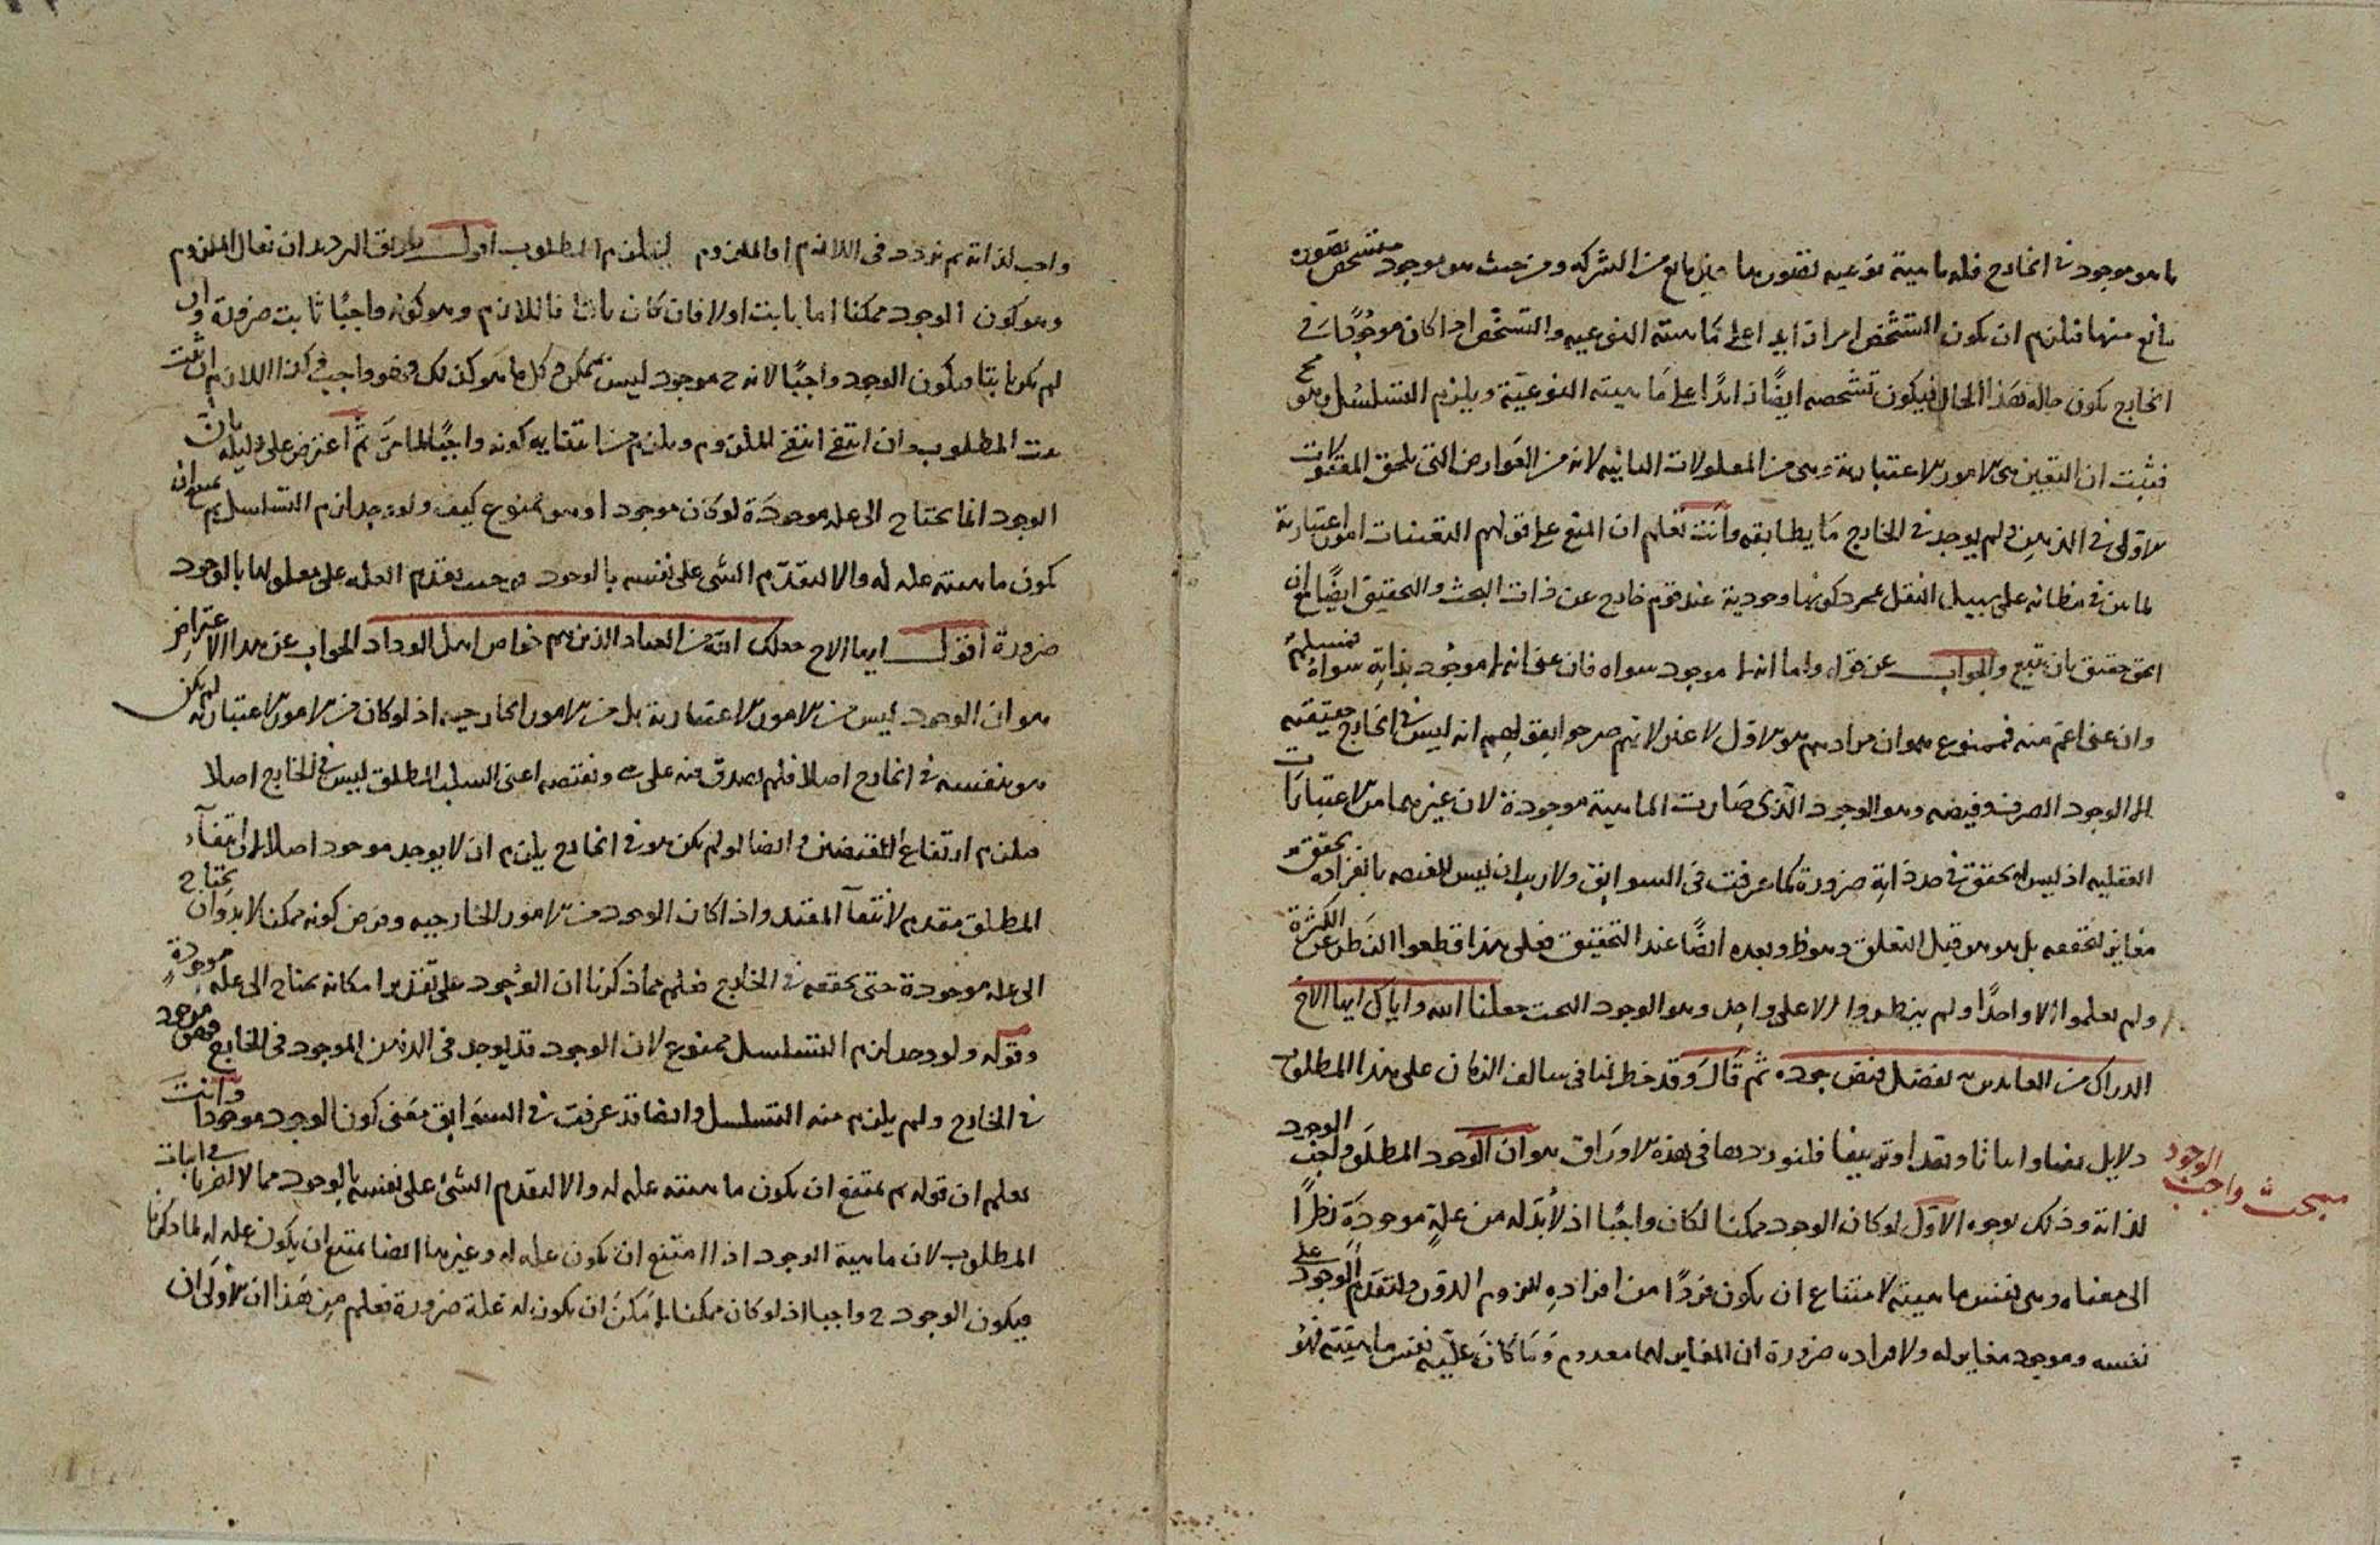 ما هو موجود في الخارج فله ماهية نوعيه تصورها غير مانع من الشركه ومن حيث هو موجود متشخص تصوره
مانع منها فيلزم ان يكون التشخص امرا زايدا على ماهيته النوعيه والتشخص اذا كان موجودا في
الخارج يكون حاله هذا الحال فيكون تشخصه ايضًا زائدًا على ماهيته النوعيّة ويلزم التسلسل وهو مح
فثبت ان التعين من الامور الاعتبارية وهي من المعقولات الثانيه لانه من العوارض التي تلحق المعقولات
الاولى في الذهن ولم يوجد في الخارج ما يطابقه وانت تعلم ان المنع على قولهم التعينات امور اعتبارية
لما من في مظانه على سبيل النقل مجرد كونها وجودية عند قوم خارج عن ذات البحث والتحقيق ايضًا فان
الحق حقيق بان يتبع والجواب عن قوله واما انه لا موجود سواه فان عنى انه لا موجود بذاته سواه فمسلم
وان عنى اعم منه فممنوع هو ان مرادهم هو الاول لا غير لانهم صرحوا بقولهم انه ليس في الخارج حقيقته
الا الوجود الصرف وفيضه وهو الوجود الّذي صارت الماهية موجودة لان غيرهما من الاعتبارات
العقليه اذ ليس له تحقق في حد ذاته ضرورة كما عرفت في السوابق ولا ريب ان ليس لفيضه بانفراده تحقق
مغاير لتحققه بل هو هو قبل التعلق وهو ظ وبعده ايضًا عند التحقيق فعلى هذا قطعوا النظر عن الكثرة
ولم يعلموا الا واحدًا ولم ينظروا الا على واحد وهو الوجود البحت جعلنا الله واياك ايها الاخ
الدراك من العابدين بفضل فيض جوده ثم قال وقد خطر لنا في سالف الزمان على هذا المطلوب
دلايل نفيا واثباتا ونقدا وتزييفا فلنوردها في هذه الاوراق هو ان الوجود المطلق واجب الوجود
لذاته وذلك لوجوه الاوّل لو كان الوجود ممكنا لكان واجبًا اذ لا بُدّ له من علةٍ موجودةٍ نظرًا
الى معناه وهي نفس ماهيته لامتناع ان يكون فردًا من افراده للزوم الدور ولتقدم الوجود على
نفسه وموجود مغاير له ولافراده ضرورة ان المغاير لهما معدوم وما كان علّته نفس ماهيّته فهو
مبحث واجب الوجود
واجب لذاته ثم نردد في اللازم او الملزوم ليلزم المطلوب اول طريق الترديد ان يقال الملزوم
وهو كون الوجود ممكنا اما ثابت او لا فان كان ثابتا فاللازم وهو كونه واجبًا ثابت ضرورة وان
لم يكن ثابتا فيكون الوجود واجبًا لانه ح موجود ليس بممكن وكل ما هو كذلك فهو واجب وكذا اللازم ان ثبت
ثبت المطلوب وان انتفى انتفى الملزوم ويلزم من انتفايه كونه واجبًا لما مرّ ثم اعترض على دليله بان
الوجود انما يحتاج الى علة موجودة لو كان موجودا وهو ممنوع كيف ولو وجد لزم التسلسل ثم يمتنع ان
يكون ماهيته علة له والا لتقدّم الشي على نفسه بالوجود لوجوب تقدم العله على معلولها بالوجود
ضرورة اقول ايها الاخ جعلك الله من العباد الذين هم خواص اهل الوداد الجواب عن هذا الاعتراض
هو ان الوجود ليس من الامور الاعتبارية بل من الامور الخارجيه اذ لو كان من الامور الاعتبارية لم يكن
هو بنفسه في الخارج اصلا فلم يصدق منه على شي ونقيضه اعني السلب المطلق ليس في الخارج اصلا
فيلزم ارتفاع النقيضين وايضا لو لم يكن هو في الخارج يلزم ان لا يوجد موجود اصلا لان انتفآء
المطلق مقدم لانتفآ المقيد واذا كان الوجود من الامور الخارجيه وفرض كونه ممكنا لا بد وان يحتاج
الى علة موجودة حتى يحققه في الخارج فعلم مما ذكرنا ان الوجود على تقدير امكانه يحتاج الى علة موجودة
وقوله ولو وجد لزم التسلسل ممنوع لان الوجود قد يوجد في الذهن الموجود في الخارج فهو موجود
في الخارج ولم يلزم منه التسلسل وايضا قد عرفت في السوابق معنى كون الوجود موجودا وانت
تعلم ان قوله ثم يمتنع ان يكون ماهيته علة له والا لتقدم الشئ على نفسه بالوجود مما لا يضرنا في اثبات
المطلوب لان ماهية الوجود اذا امتنع ان يكون علة له وغيرها ايضا يمتنع ان يكون علة له لما ذكرنا
فيكون الوجود ح واجبا اذ لو كان ممكنا لامكن ان يكون له علة ضرورة فعلم من هذا ان الاولى ان